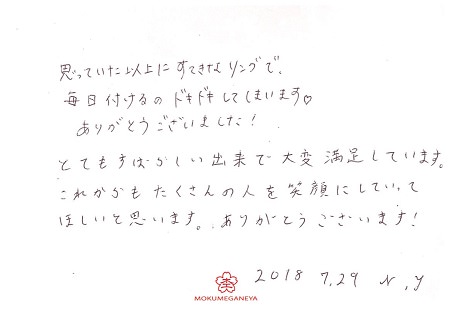 思っていた以上にすてきなリングで、
毎日付けるのドキドキしてしまいます♡
ありがとうございました!
とてもすばらしい出来で大変満足しています。
これからもたくさんの人を笑顔にしていって
ほしいと思います。ありがとうございます!
2018 7,29 N,Y
MOKUMEGANEYA